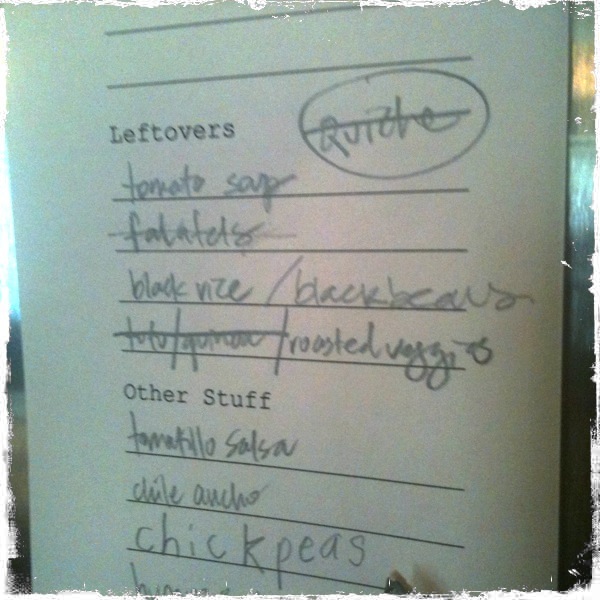 Leftovers
Quiche
tomato soup
falafels
black rice / black beans
tofu/quinoa/roasted veggies
Other Stuff
tomatillo salsa
chile ancho
chickpeas